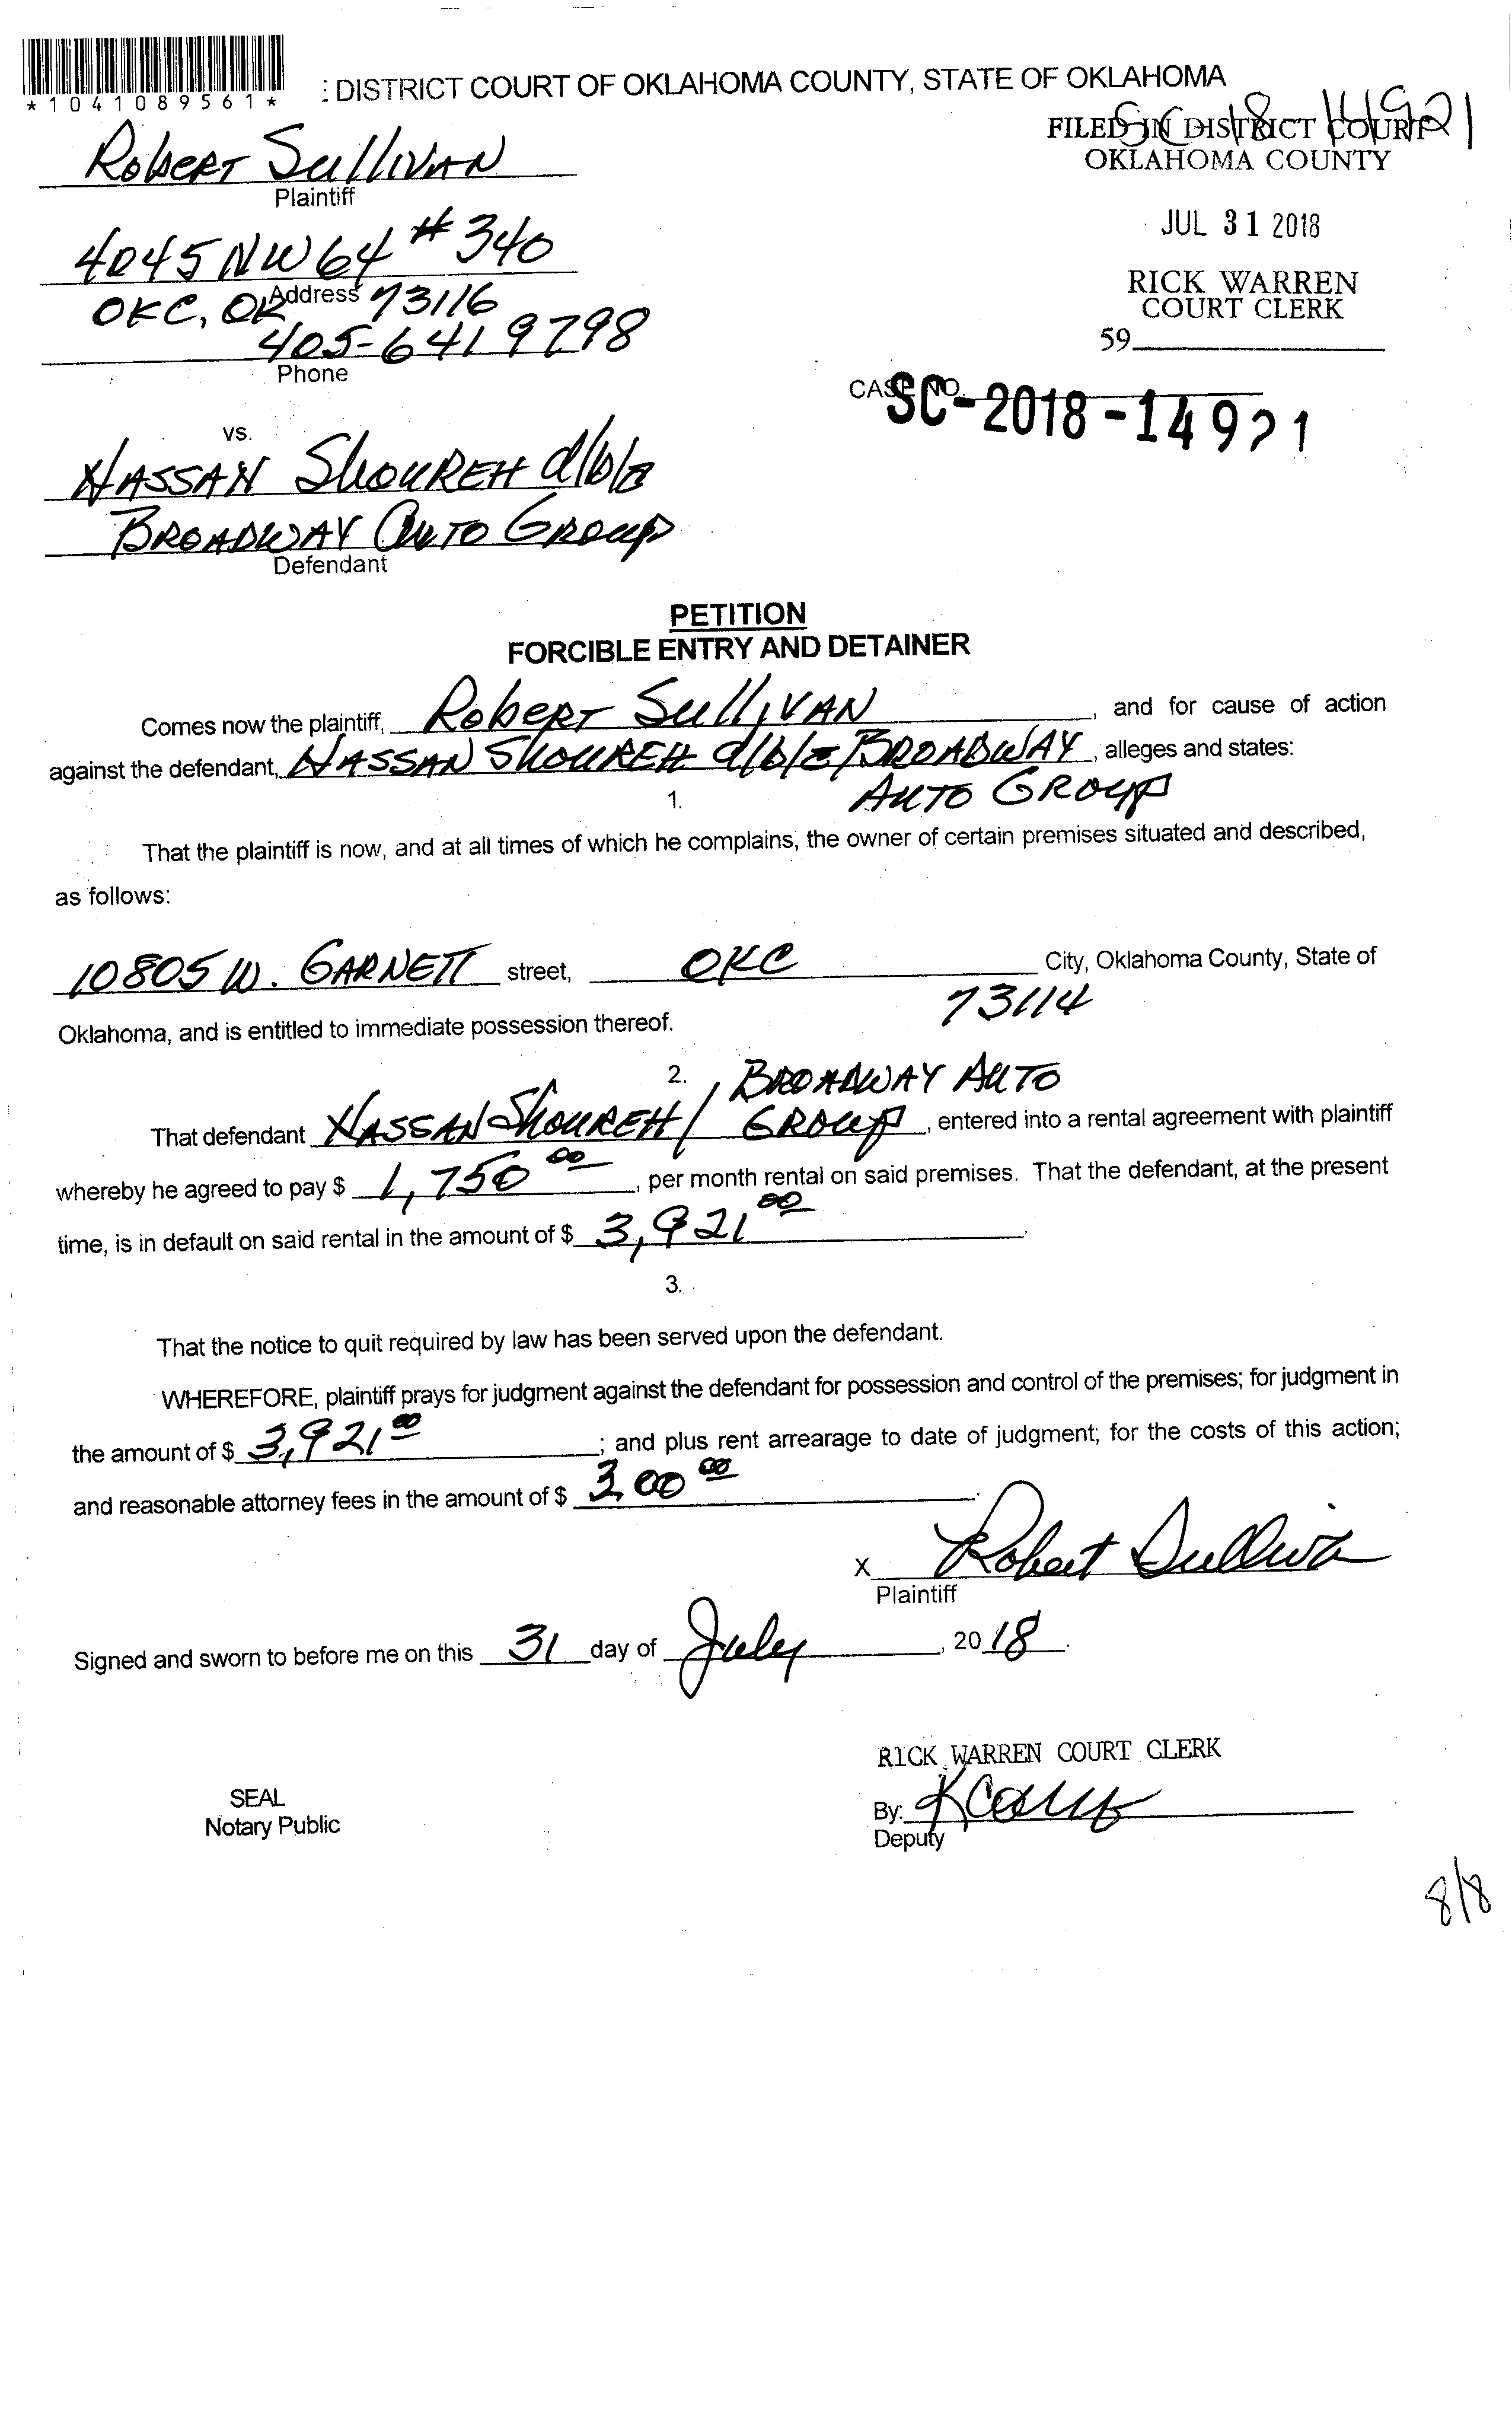 : DISTRICT COURT OF OKLAHOMA COUNTY, STATE OF OKLAHOMA
*1041089561*
SC 18 14921
FILED IN DISTRICT COURT
OKLAHOMA COUNTY
Robert Sullivan
Plaintiff
JUL 31 2018
4045 NW 64 # 340
Address
OKC, OK 73116
RICK WARREN
COURT CLERK
405-641 9798
Phone
59
CASE NO.
SC-2018-14921
vs.
HASSAN SHOUREH d/b/a
BROADWAY AUTO GROUP
Defendant
PETITION
FORCIBLE ENTRY AND DETAINER
Comes now the plaintiff, Robert Sullivan, and for cause of action
against the defendant, HASSAN SHOUREH d/b/a/BROADWAY, alleges and states:
AUTO GROUP
1.
That the plaintiff is now, and at all times of which he complains, the owner of certain premises situated and described,
as follows:
10805 W. GARNETT street, OKC City, Oklahoma County, State of
73114
Oklahoma, and is entitled to immediate possession thereof.
2.
BROADWAY AUTO
That defendant HASSAN SHOUREH / GROUP, entered into a rental agreement with plaintiff
whereby he agreed to pay $ 1,750 00, per month rental on said premises. That the defendant, at the present
time, is in default on said rental in the amount of $ 3,921 00.
3.
That the notice to quit required by law has been served upon the defendant.
WHEREFORE, plaintiff prays for judgment against the defendant for possession and control of the premises; for judgment in
the amount of $ 3,921 00; and plus rent arrearage to date of judgment; for the costs of this action;
and reasonable attorney fees in the amount of $ 300 00.
X Robert Sullivan
Plaintiff
Signed and sworn to before me on this 31 day of July, 2018.
RICK WARREN COURT CLERK
SEAL
Notary Public
By:
Deputy
8/8